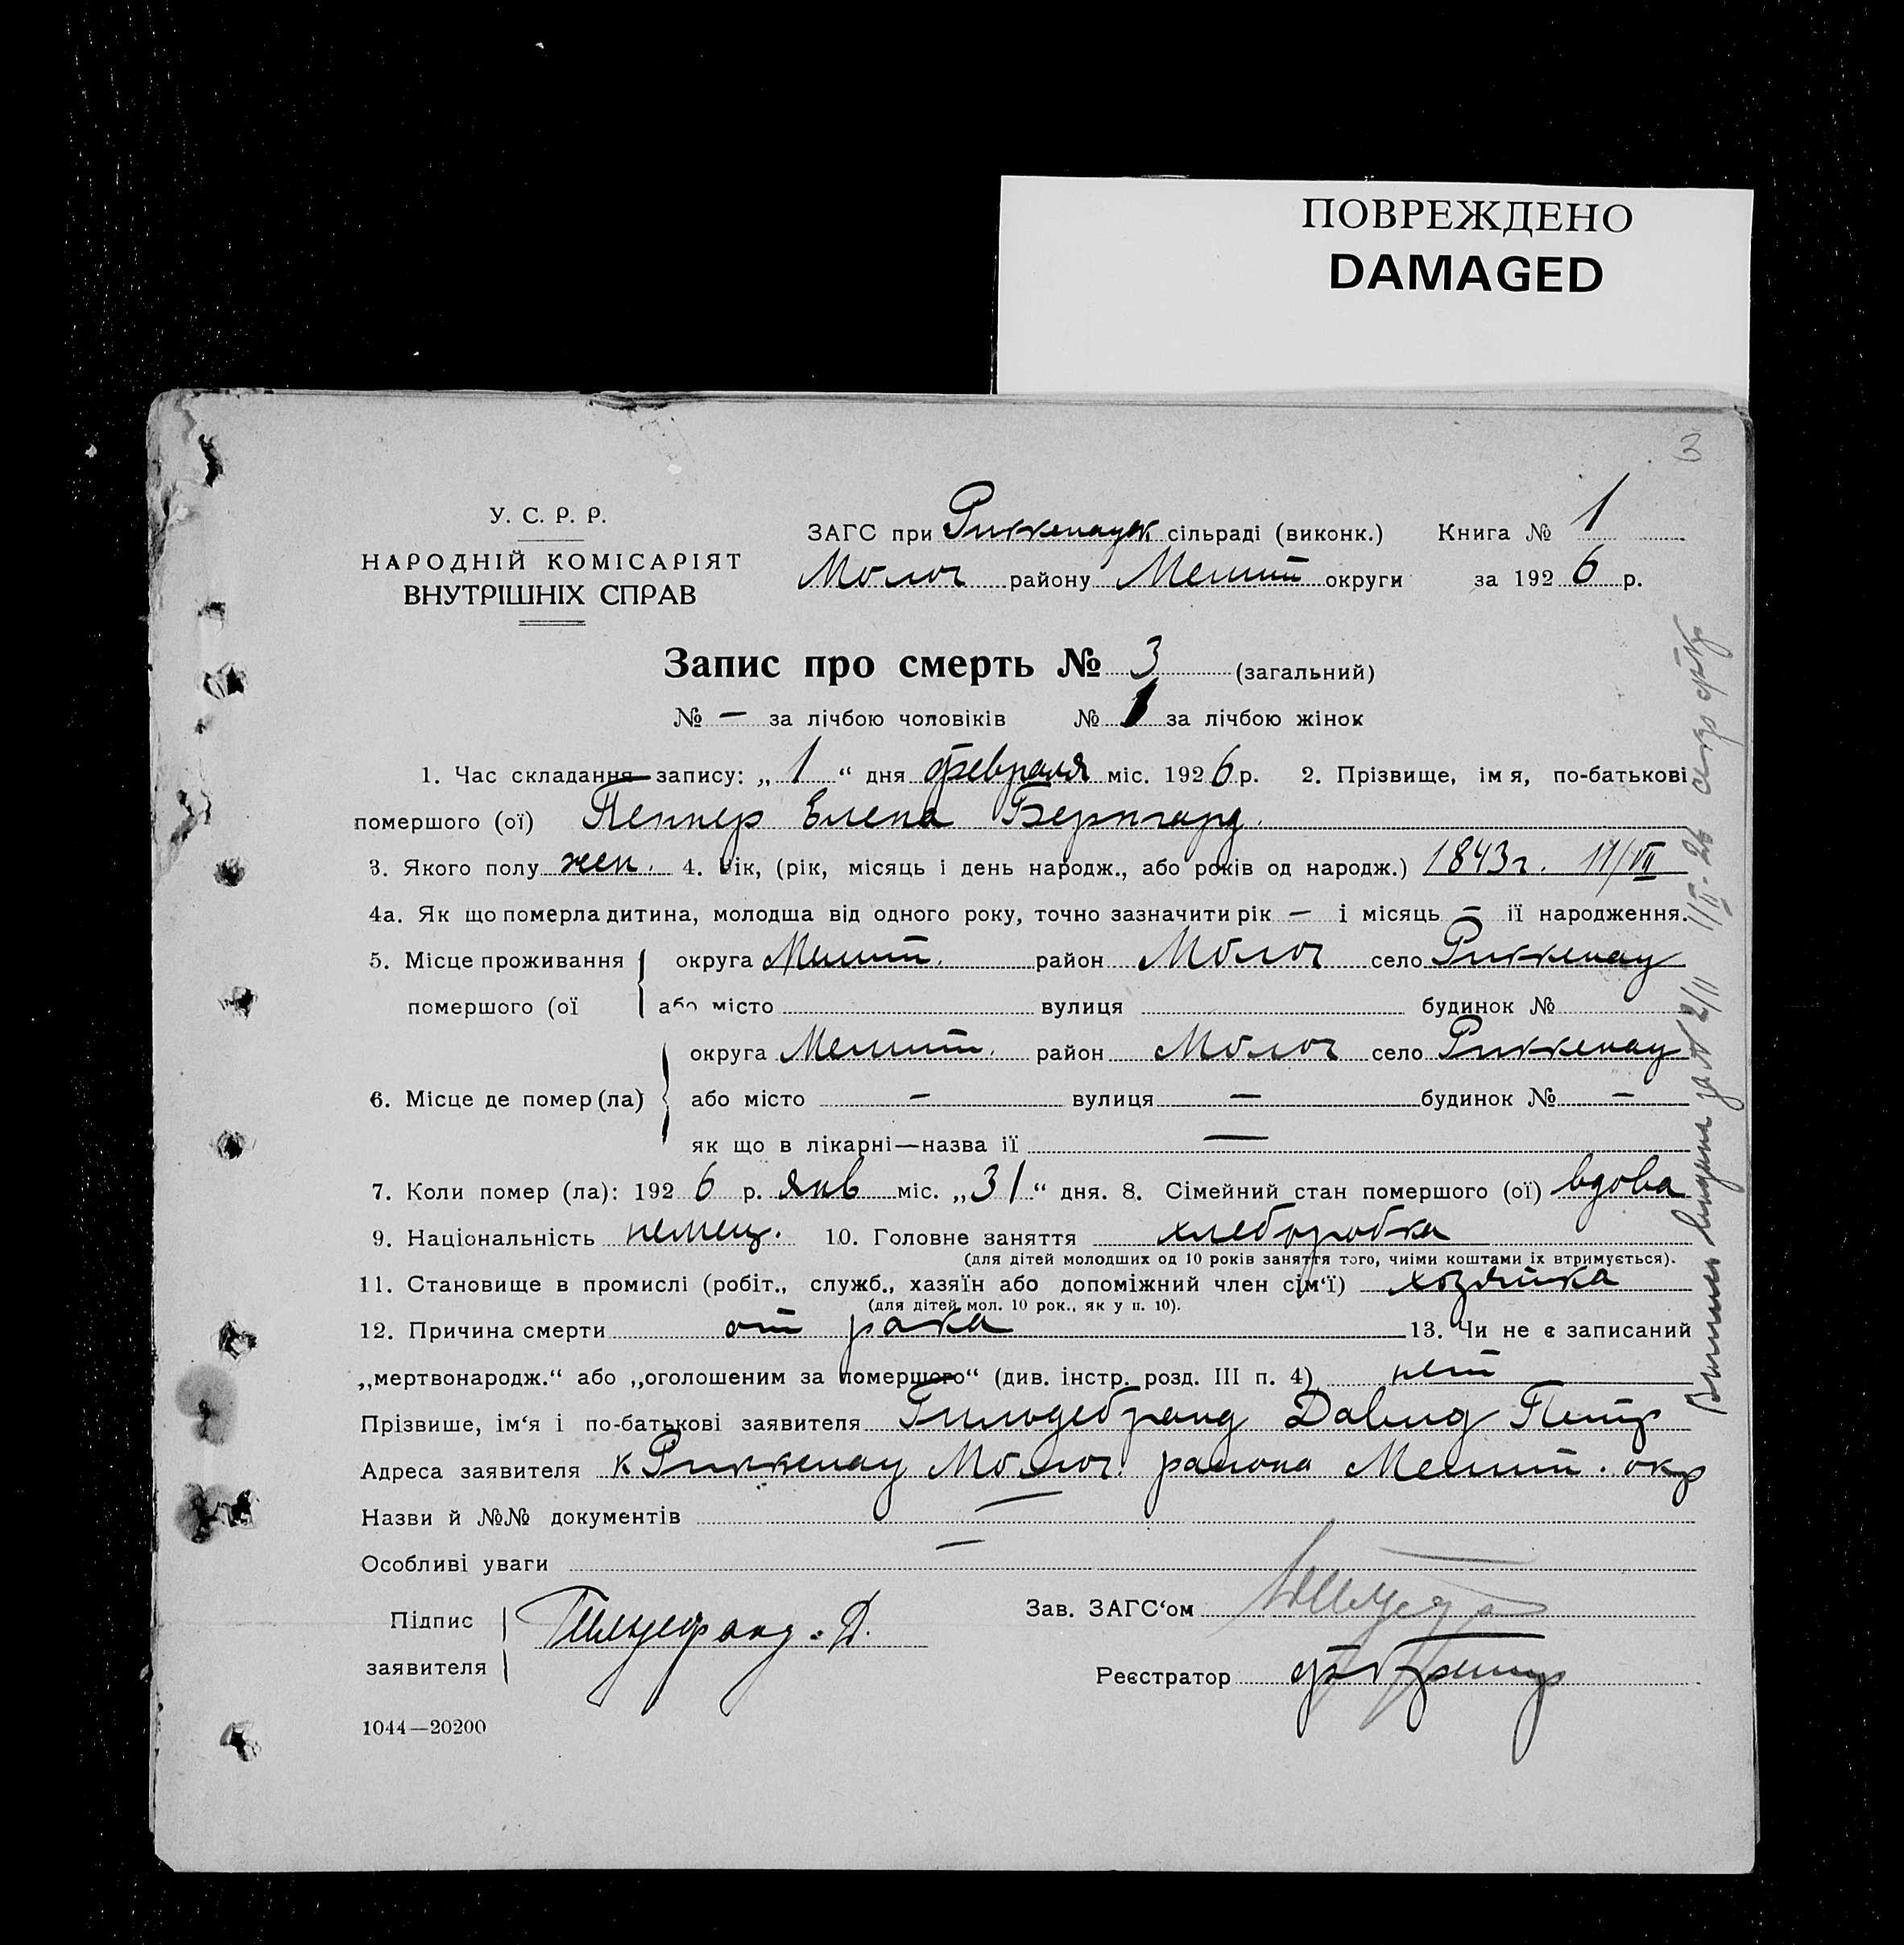 ПОВРЕЖДЕНО
DAMAGED
3
У. С. Р. Р.
НАРОДНІЙ КОМІСАРІЯТ
ВНУТРІШНІХ СПРАВ
ЗАГС при Риккенауск сільраді (виконк.) Книга № 1
Молоч району Мелит округи за 1926 р.
Запис про смерть № 3 (загальний)
№ — за лічбою чоловіків № 1 за лічбою жінок
1. Час складання запису: „1“ дня февраля міс. 1926 р. 2. Прізвище, імя, по-батькові
помершого (ої) Пеннер Елена Бернгард.
3. Якого полу жен. 4. Вік, (рік, місяць і день народж., або років од народж.) 1843 г. 11/VII
4а. Як що померла дитина, молодша від одного року, точно зазначити рік — і місяць — її народження.
5. Місце проживання округа Мелит. район Молоч село Риккенау
помершого (ої або місто вулиця будинок №
6. Місце де помер (ла) округа Мелит. район Молоч село Риккенау
або місто — вулиця — будинок № —
як що в лікарні—назва її —
7. Коли помер (ла): 1926 р. янв міс. „31“ дня. 8. Сімейний стан помершого (ої) вдова
9. Національність немец. 10. Головне заняття хлеборобка
(для дітей молодших од 10 років заняття того, чиїми коштами їх втримується).
11. Становище в промислі (робіт., служб., хазяїн або допоміжний член сім‘ї) хозяйка
(для дітей мол. 10 рок., як у п. 10).
12. Причина смерти от рака 13. Чи не є записаний
„мертвонародж.“ або „оголошеним за помершого“ (див. інстр. розд. III п. 4) нет
Прізвише, ім‘я і по-батькові заявителя Гильдебранд Давид Петр
Адреса заявителя к Риккенау Молоч. района Мелит. окр
Назви й №№ документів —
Особливі уваги —
Підпис
заявителя Гильдебранд. Д.
Зав. ЗАГС‘ом
Реєстратор
1044—20200
выдана за № 2/11 1/II-26